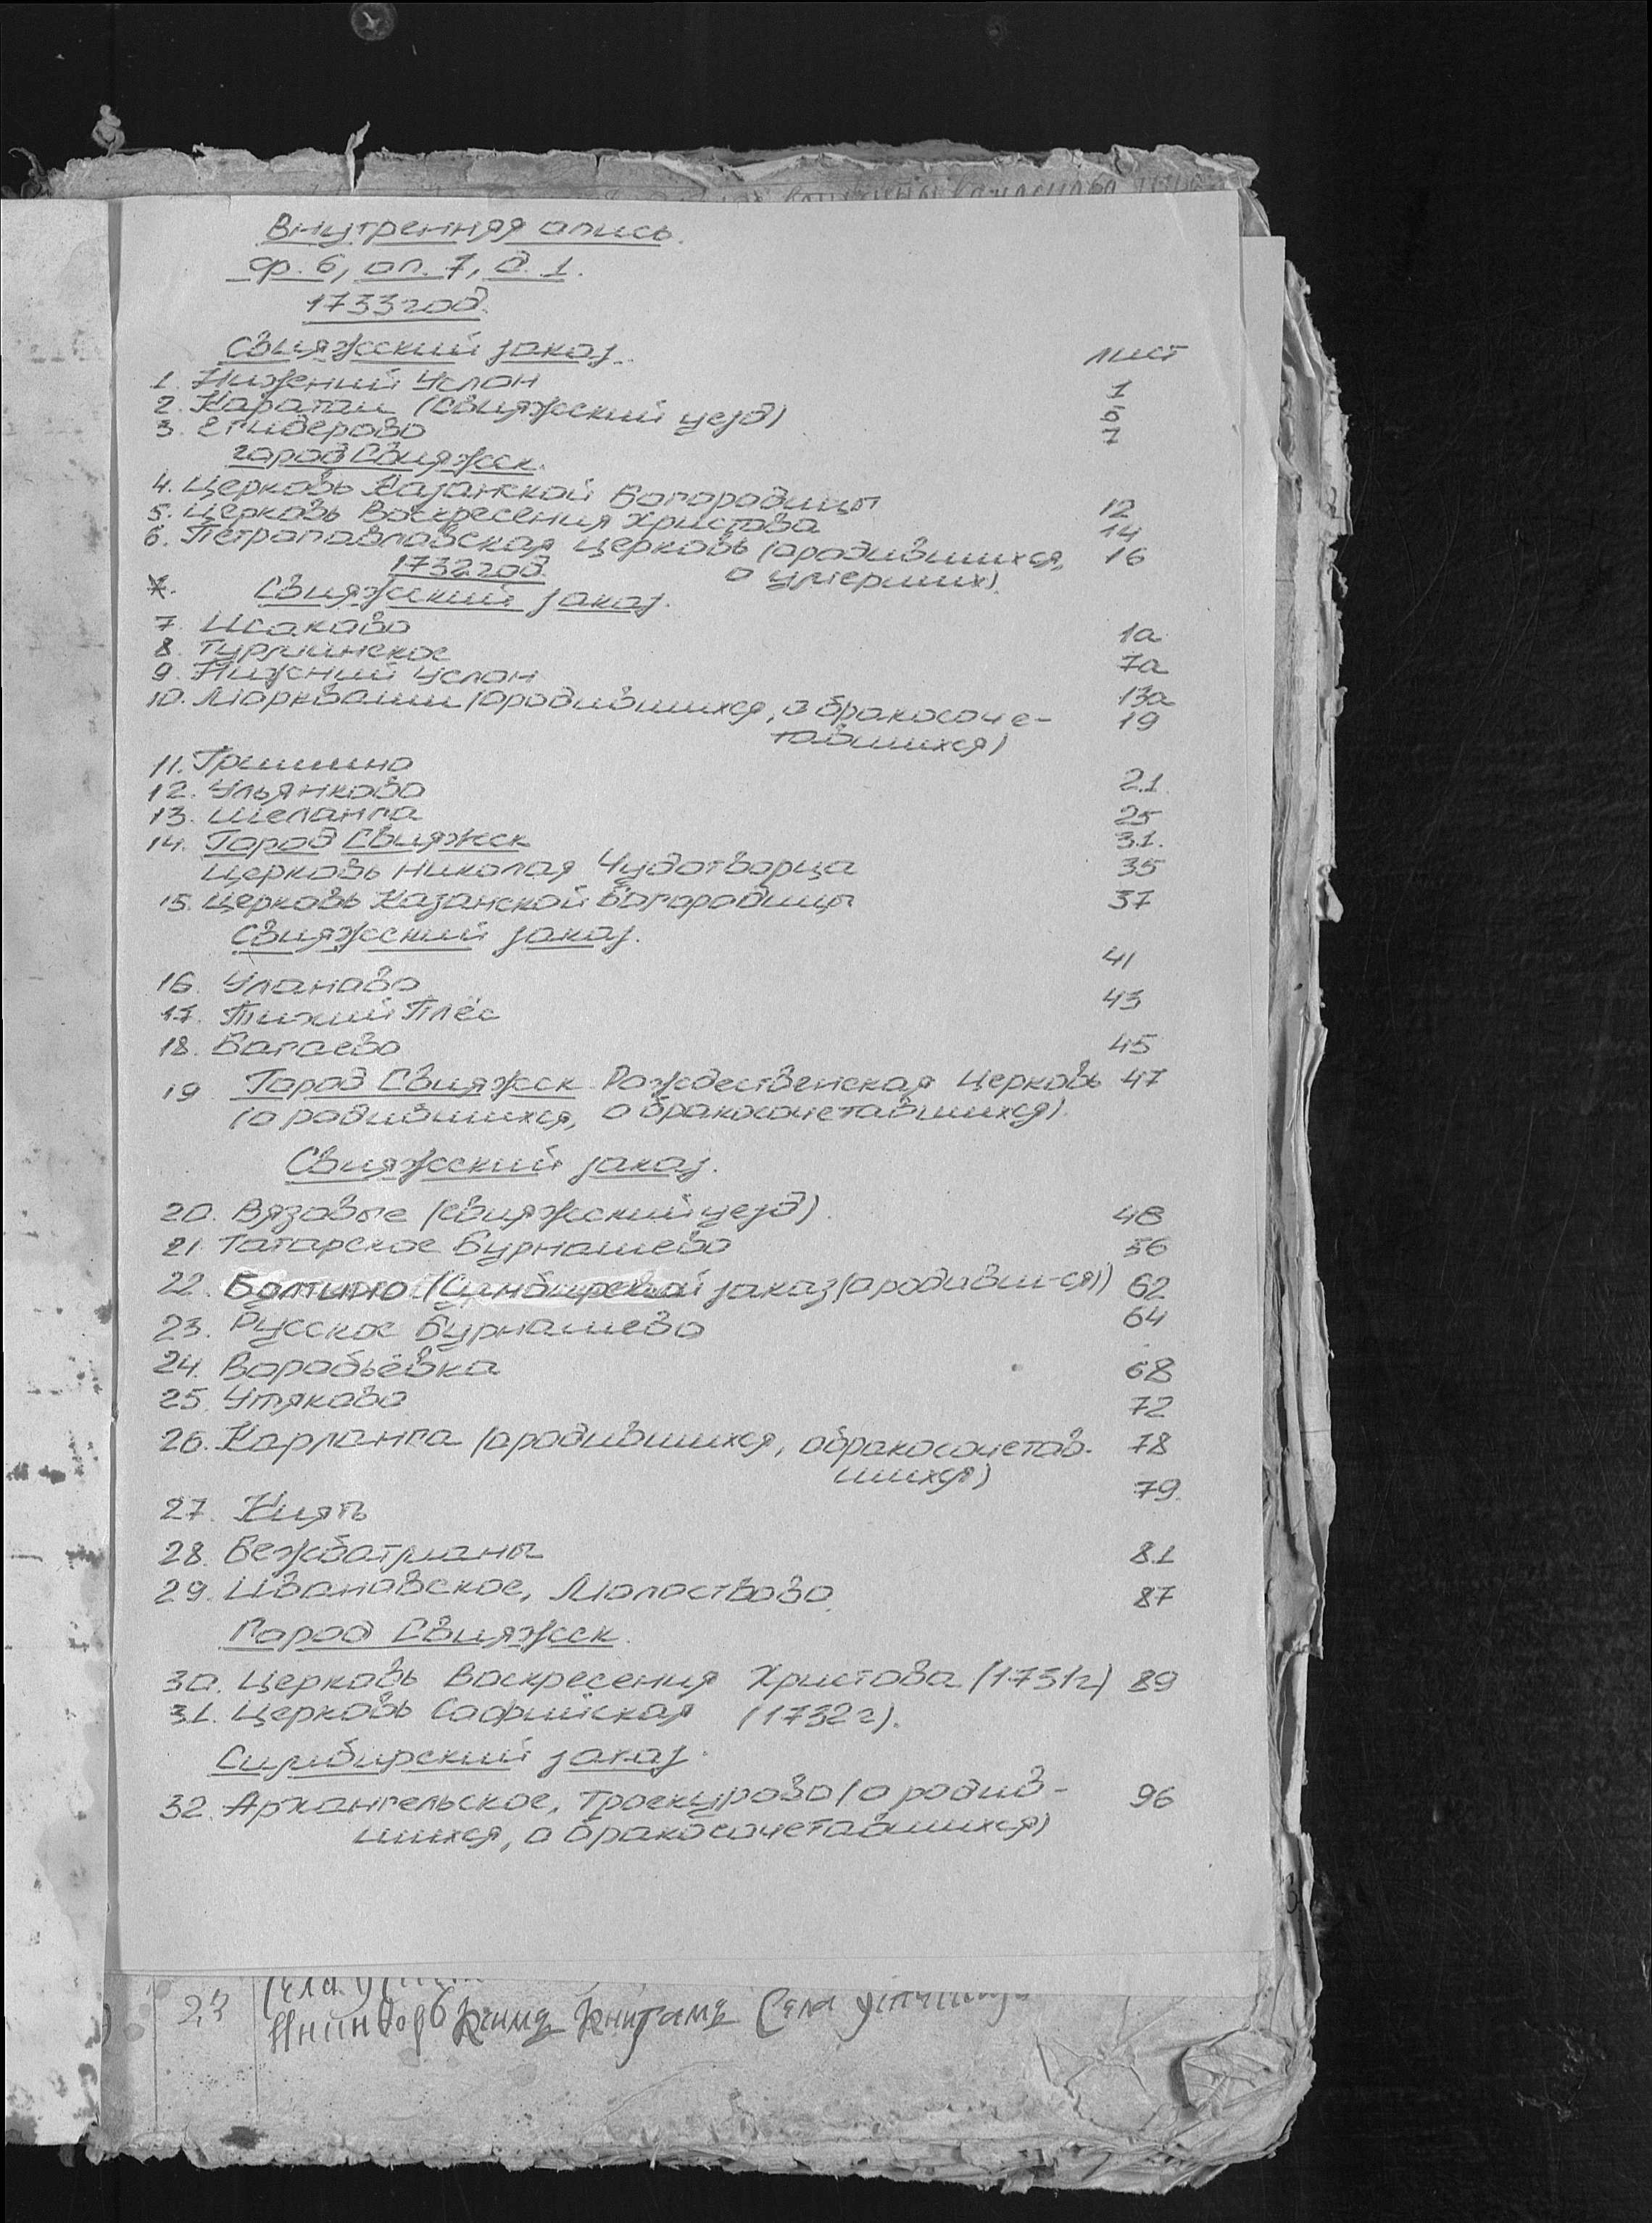 Внутренняя опись.
ф. 6, оп. 7, д. 1.
1733 год.
Свияжский заказ. лист
1. Нижений Услон 1
2. Каратаи (Свияжский уезд) 5
3. Егидерево 7
город Свияжск.
4. Церковь Казанской Богородицы 12
5. Церковь Воскресения Христова 14
6. Петропавловская церковь (о родившихся, 16
о умерших).
1732 год.
Свияжский заказ.
7. Исаково 1а
8. Турминское 7а
9. Нижний Услон 13а
10. Моркваши (о родившихся, о бракосоче- 19
тавшихся)
11. Гришино 21.
12. Ульянково 25
13. Шеланга 31.
14. Город Свияжск
Церковь Николая Чудотворца 35
15. Церковь Казанской Богородицы 37
Свияжский заказ.
16. Уланово 41
17. Тихий Плёс 43
18. Багаево 45
19. Город Свияжск Рождественская Церковь 47
(о родившихся, о бракосочетавшихся).
Свияжский заказ.
20. Вязовые (Свияжский уезд). 48
21. Татарское Бурнашево 56
22. Болтино (Симбирский заказ (о родивш-ся)) 62
23. Русское Бурнашево 64
24. Воробьёвка 68
25. Утяково 72
26. Карланга (о родившихся, о бракосочетав- 78
шихся)
27. Киять 79.
28. Бежбатманы 81
29. Ивановское, Молоствово 87
Город Свияжск.
30. Церковь Воскресения Христова (1731г) 89
31. Церковь Софийская (1732 г).
Симбирский заказ.
32. Архангельское, Троекурово (о родив- 96
шихся, о бракосочетавшихся)
23
Села